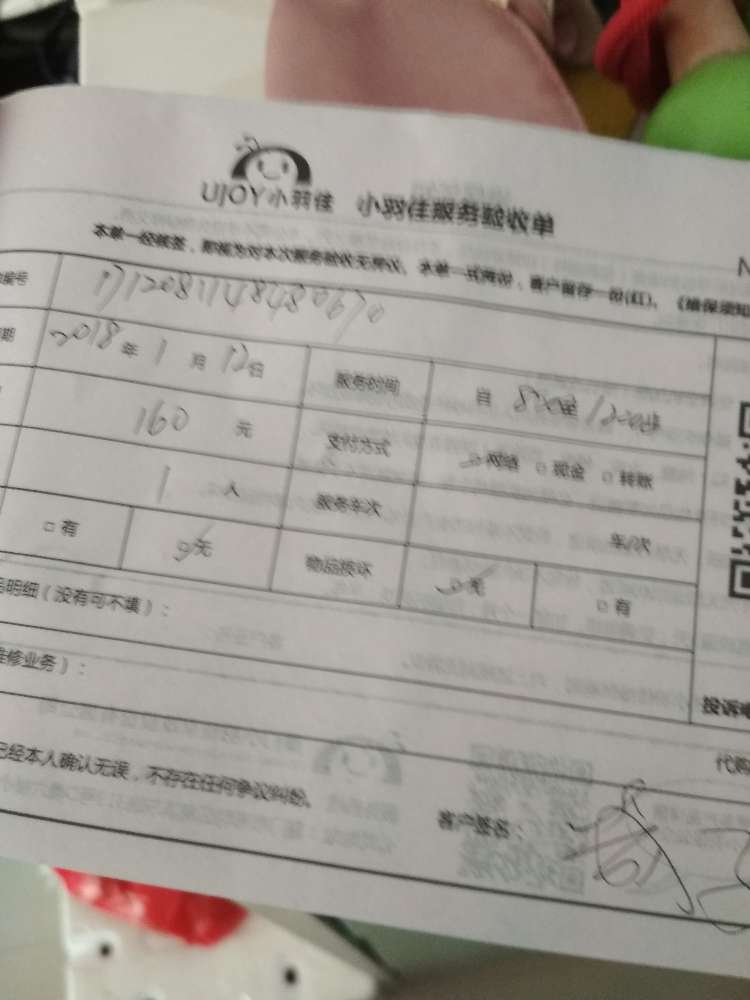 UJOY小羽佳 小羽佳服务验收单
本单一经核签，即视为对本次服务验收无异议。本单一式两份，客户留存一份(红)。《维保须知
编号
期 2018年1月12日 服务时间 自 8:00至12:00止
160 元 支付方式 网络 □现金 □转账
1 人 服务车次 车/次
□有 □无 物品损坏 □无 □有
明细（没有可不填）：
维修业务）：
投诉
代购
已经本人确认无误，不存在任何争议纠纷。
客户签名：